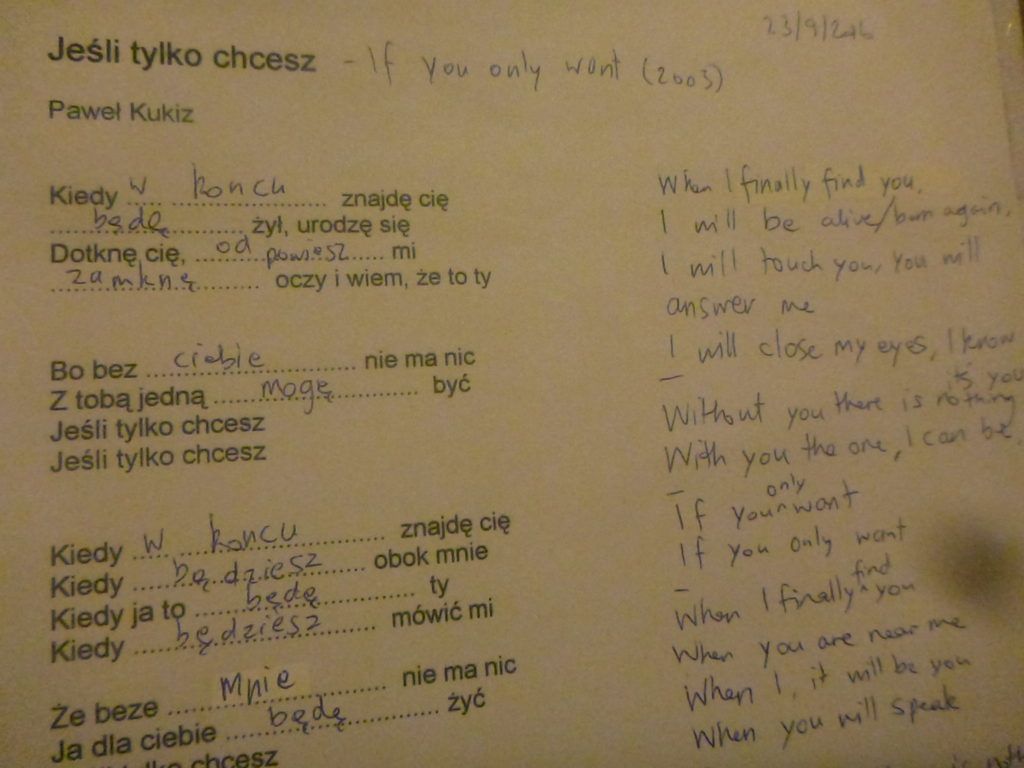 23/9/2016
Jeśli tylko chcesz - If you only want (2003)
Paweł Kukiz
Kiedy w koncu znajdę cię
będę żył, urodzę się
Dotknę cię, od powiesz mi
zamknę oczy i wiem, że to ty
Bo bez ciebie nie ma nic
Z tobą jedną mogę być
Jeśli tylko chcesz
Jeśli tylko chcesz
Kiedy w koncu znajdę cię
Kiedy będziesz obok mnie
Kiedy ja to będę ty
Kiedy będziesz mówić mi
Że beze mnie nie ma nic
Ja dla ciebie będę żyć
chcesz
When I finally find you,
I will be alive/born again,
I will touch you, you will
answer me
I will close my eyes, I know
it's you
Without you there is nothing
With you the one, I can be,
If you only want
If you only want
When I finally find you
When you are near me
When I, it will be you
When you will speak